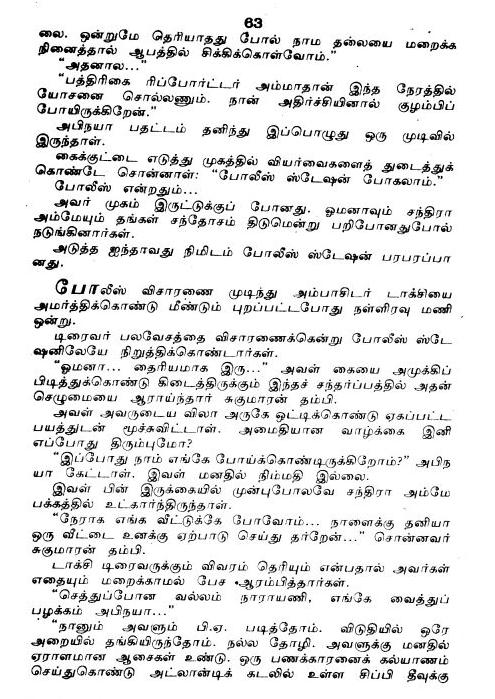 63
லை. ஒன்றுமே தெரியாதது போல் நாம தலையை மறைக்க
நினைத்தால் ஆபத்தில் சிக்கிக்கொள்வோம்."
"அதனால..."
"பத்திரிகை ரிப்போர்ட்டர் அம்மாதான் இந்த நேரத்தில்
யோசனை சொல்லணும். நான் அதிர்ச்சியினால் குழம்பிப்
போயிருக்கிறேன்."
அபிநயா பதட்டம் தனிந்து இப்பொழுது ஒரு முடிவில்
இருந்தாள்.
கைக்குட்டை எடுத்து முகத்தில் வியர்வைகளைத் துடைத்துக்
கொண்டே சொன்னாள்: "போலீஸ் ஸ்டேஷன் போகலாம்."
போலீஸ் என்றதும்...
அவர் முகம் இருட்டுக்குப் போனது. ஓமனாவும் சந்திரா
அம்மேயும் தங்கள் சந்தோசம் திடுமென்று பறிபோனதுபோல்
நடுங்கினார்கள்.
அடுத்த ஐந்தாவது நிமிடம் போலீஸ் ஸ்டேஷன் பரபரப்பா
னது.
போலீஸ் விசாரணை முடிந்து அம்பாசிடர் டாக்சியை
அமர்த்திக்கொண்டு மீண்டும் புறப்பட்டபோது நள்ளிரவு மணி
ஒன்று.
டிரைவர் பலவேசத்தை விசாரணைக்கென்று போலீஸ் ஸ்டே
ஷனிலேயே நிறுத்திக்கொண்டார்கள்.
"ஓமனா... தைரியமாக இரு..." அவள் கையை அமுக்கிப்
பிடித்துக்கொண்டு கிடைத்திருக்கும் இந்தச் சந்தர்ப்பத்தில் அதன்
செழுமையை ஆராய்ந்தார் சுகுமாரன் தம்பி.
அவள் அவருடைய விலா அருகே ஒட்டிக்கொண்டு ஏகப்பட்ட
பயத்துடன் மூச்சுவிட்டாள். அமைதியான வாழ்க்கை இனி
எப்போது திரும்புமோ?
"இப்போது நாம் எங்கே போய்க்கொண்டிருக்கிறோம்?" அபிந
யா கேட்டாள். இவள் மனதில் நிம்மதி இல்லை.
இவள் பின் இருக்கையில் முன்புபோலவே சந்திரா அம்மே
பக்கத்தில் உட்கார்ந்திருந்தாள்.
"நேராக எங்க வீட்டுக்கே போவோம்... நாளைக்கு தனியா
ஒரு வீட்டை உனக்கு ஏற்பாடு செய்து தர்றேன்..." சொன்னவர்
சுகுமாரன் தம்பி.
டாக்சி டிரைவருக்கும் விவரம் தெரியும் என்பதால் அவர்கள்
எதையும் மறைக்காமல் பேச ஆரம்பித்தார்கள்.
"செத்துப்போன வல்லம் நாராயணி, எங்கே வைத்துப்
பழக்கம் அபிநயா..."
"நானும் அவளும் பி.ஏ. படித்தோம். விடுதியில் ஒரே
அறையில் தங்கியிருந்தோம். நல்ல தோழி. அவளுக்கு மனதில்
ஏராளமான ஆசைகள் உண்டு. ஒரு பணக்காரனைக் கல்யாணம்
செய்துகொண்டு அட்லாண்டிக் கடலில் உள்ள சிப்பி தீவுக்கு